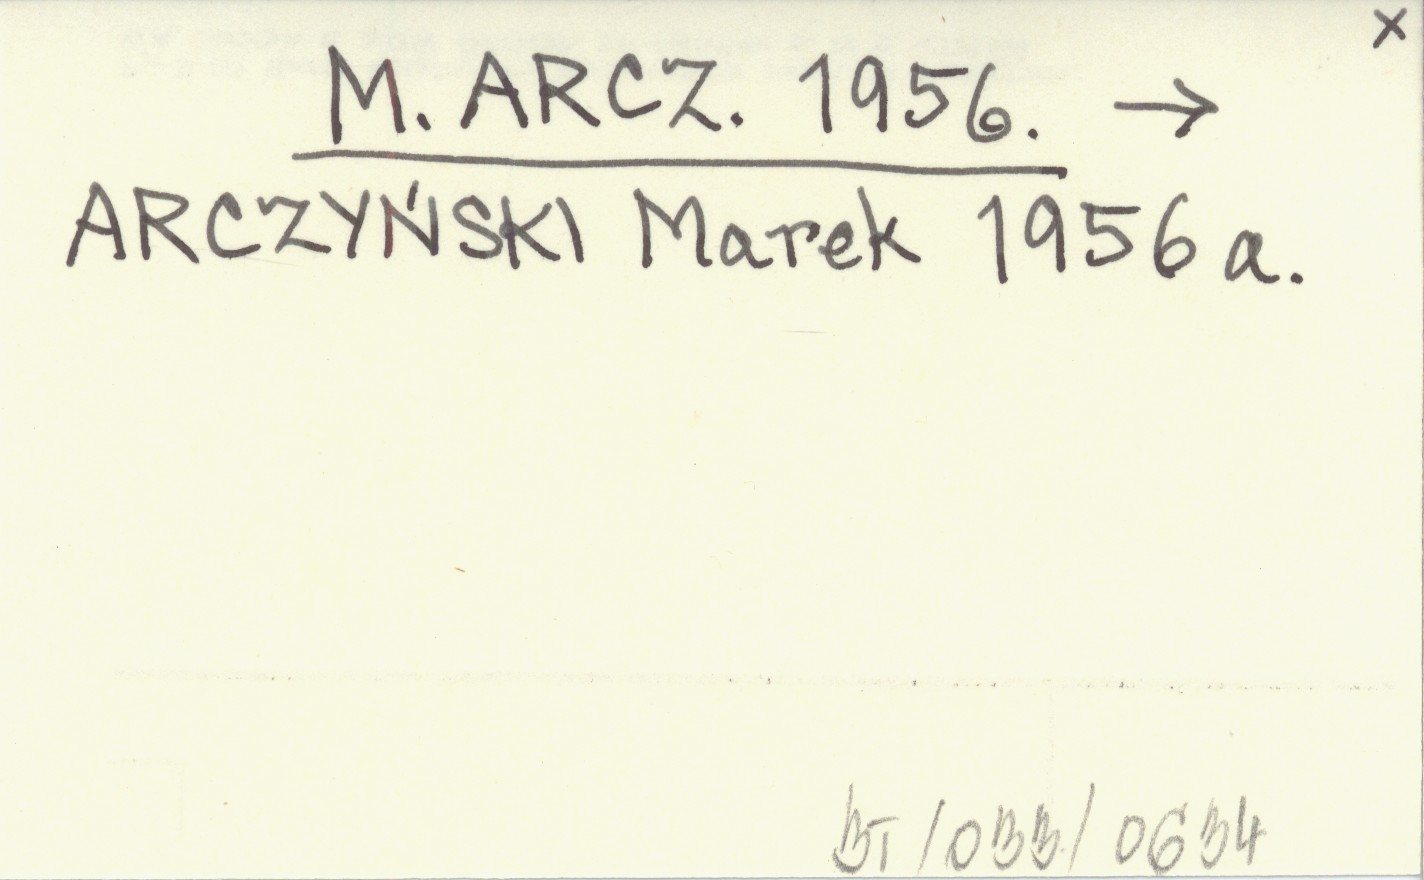 x
M. ARCZ. 1956. →
ARCZYŃSKI Marek 1956 a.
BT/033/0634